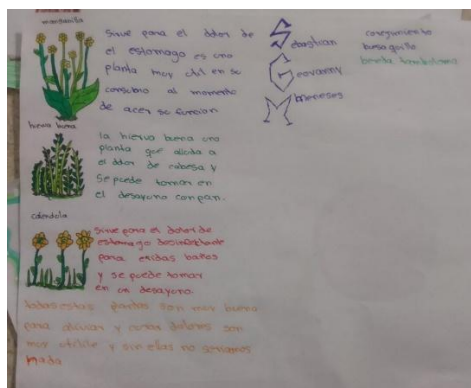 manzanilla
Sirve para el dolor de
el estomago es una
planta muy util en su
consumo al momento
de acer su funcion
hierva buena
la hierva buena una
planta que alivia a
el dolor de cabesa y
Se puede tomar en
el desayuno con pan.
caléndola
Sirve para el dolor de
estomago desinfectante
para eridas baños
y se puede tomar
en un desayuno.
todas estas plantas son muy buena
para aliviar y curar dolores son
muy utiles y sin ellas no seriamos
nada
Sebastian
Geovanny
Meneses